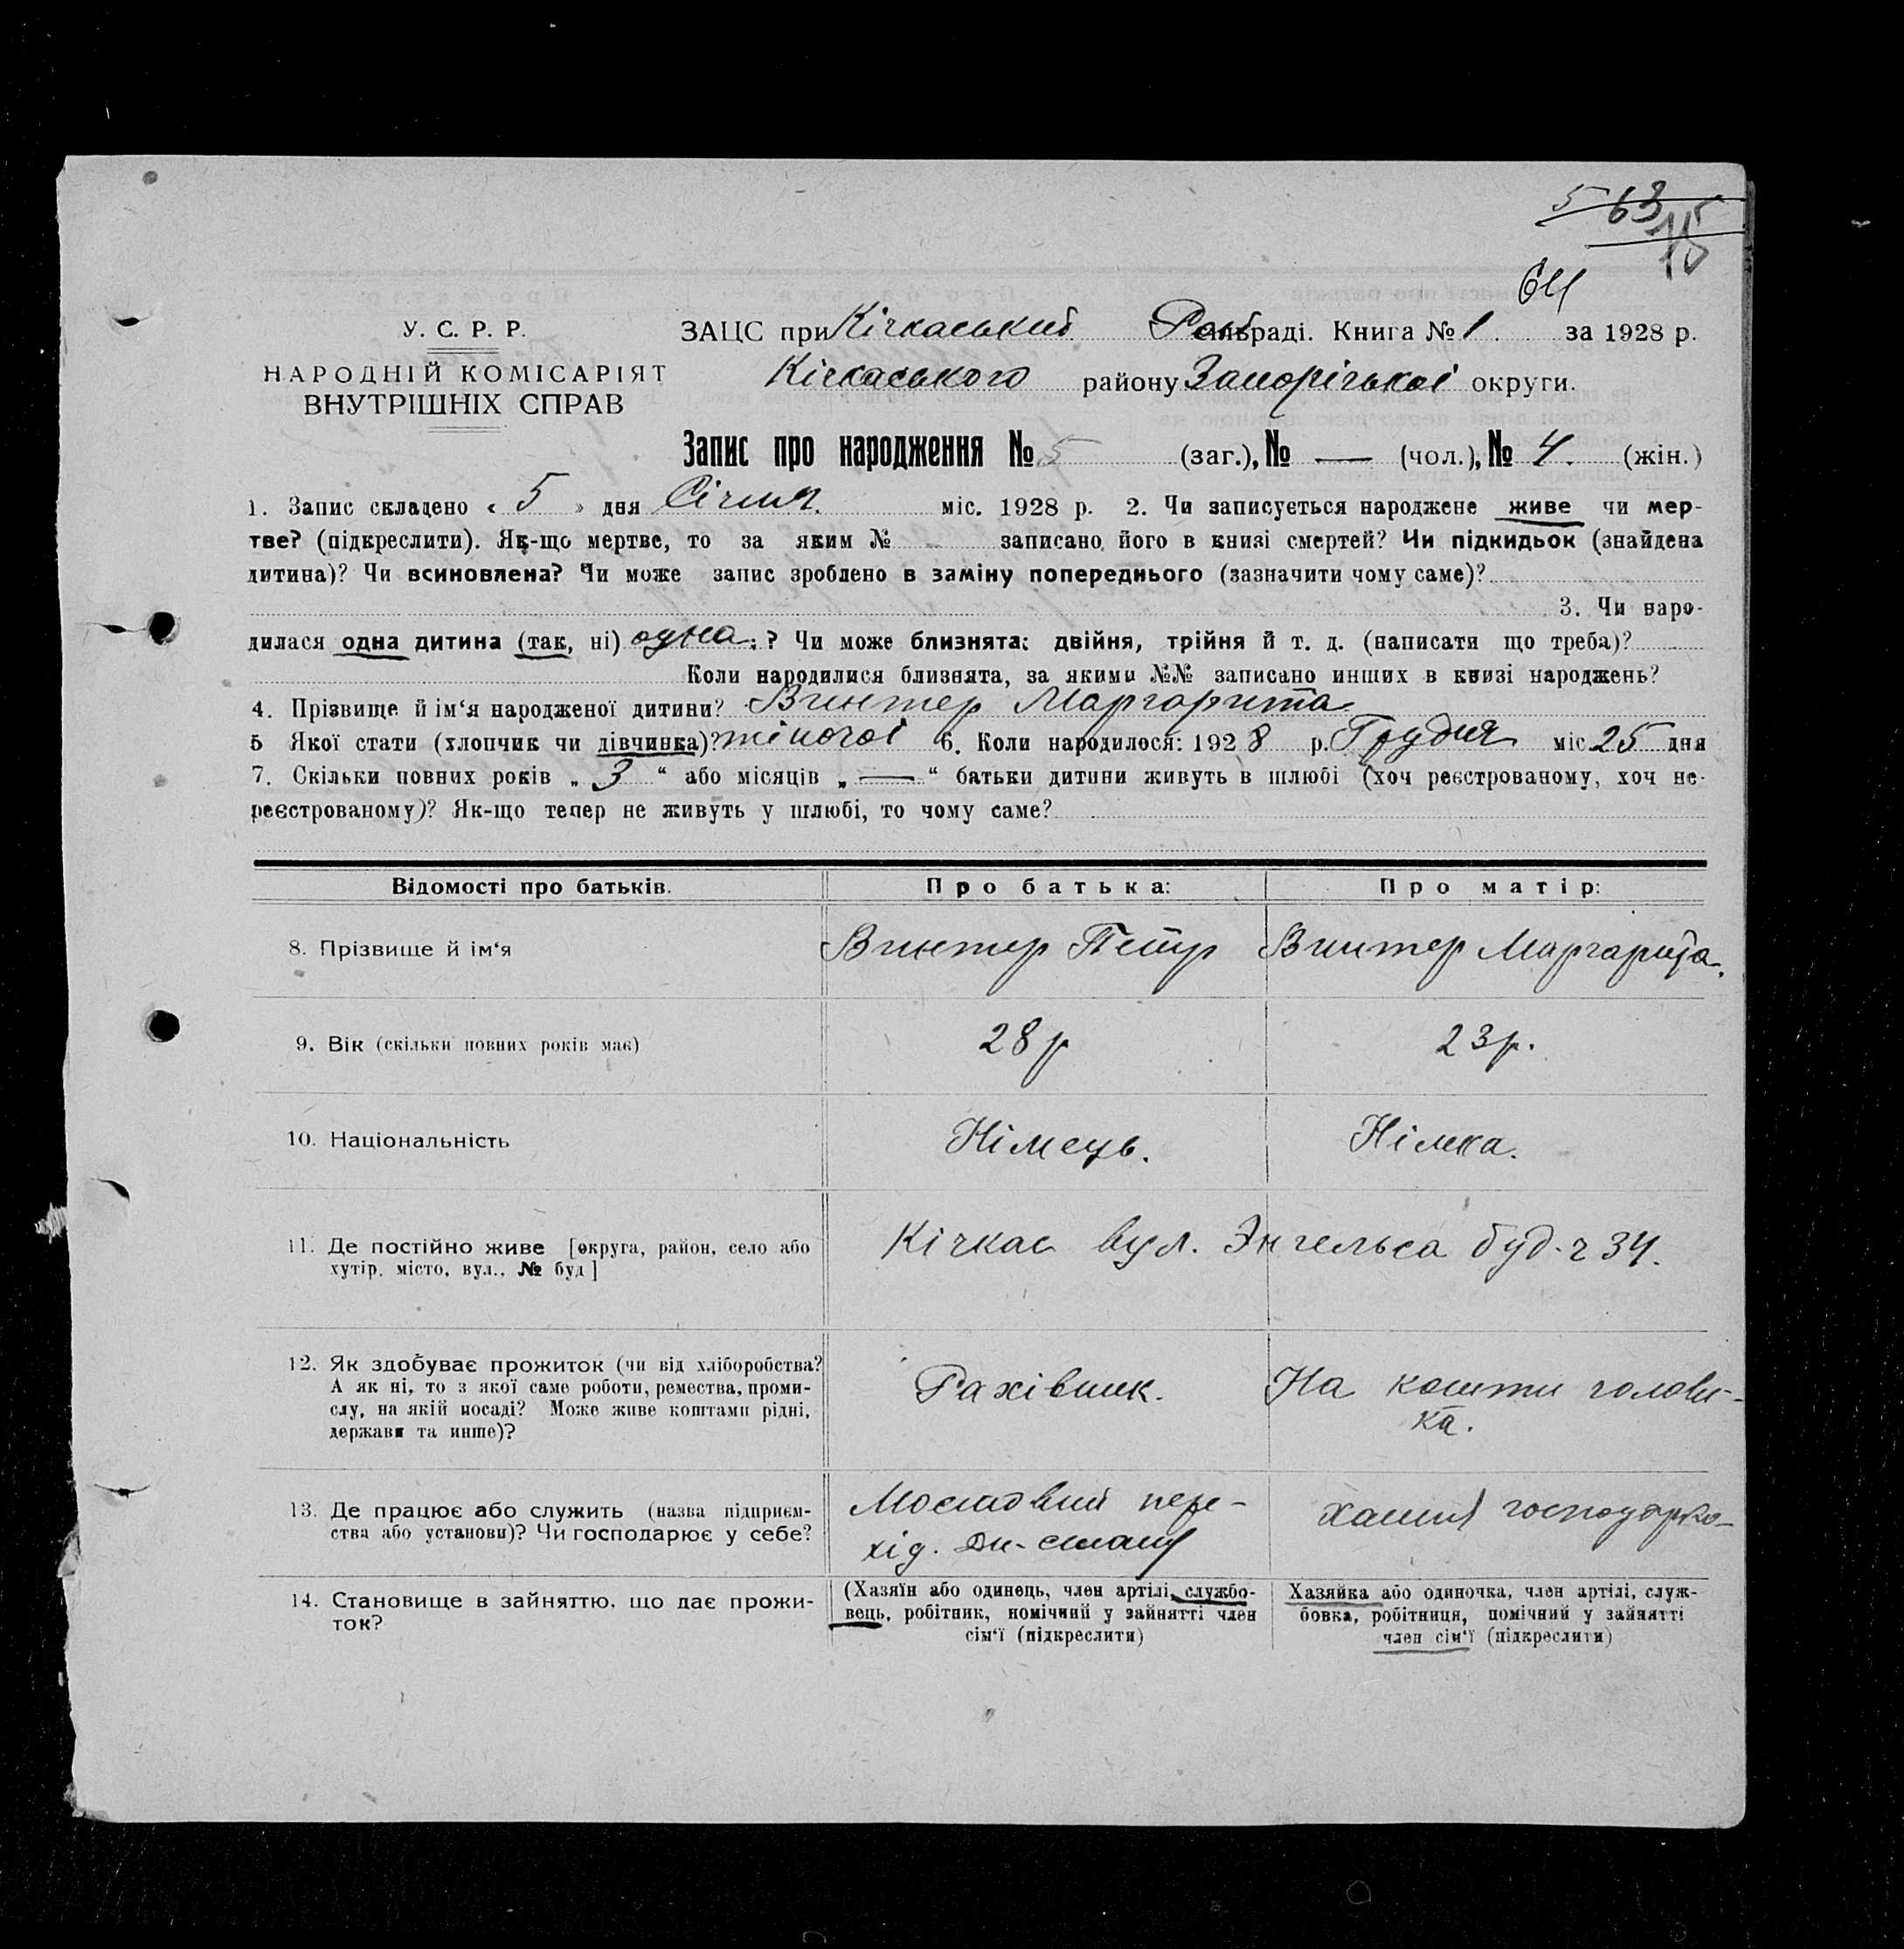 5 63
15
64
У. С. Р. Р.
НАРОДНІЙ КОМІСАРІЯТ
ВНУТРІШНІХ СПРАВ
ЗАЦС при Кічкаський сільраді. Книга № 1. за 1928 р.
Кічкаського району Запорізької округи.
Запис про народження № 5 (заг.), № — (чол.), № 4. (жін.)
1. Запис складено « 5 » дня Січня. міс. 1928 р. 2. Чи записується народжене живе чи мер-
тве? (підкреслити). Як-що мертве, то за яким № записано його в книзі смертей? Чи підкидьок (знайдена
дитина)? Чи всиновлена? Чи може запис зроблено в заміну попереднього (зазначити чому саме)?
3. Чи наро-
дилася одна дитина (так, ні) одна ; ? Чи може близнята: двійня, трійня й т. д. (написати що треба)?
Коли народилися близнята, за якими №№ записано инших в книзі народжень?
4. Прізвище й ім‘я народженої дитини? Винтер Маргарита
5 Якої стати (хлопчик чи дівчинка)? жіночої 6. Коли народилося: 1928 р. Грудня міс 25 дня
7. Скільки повних років „ 3 “ або місяців „ — “ батьки дитини живуть в шлюбі (хоч реєстрованому, хоч не-
реєстрованому)? Як-що тепер не живуть у шлюбі, то чому саме?
Відомості про батьків. Про батька: Про матір:
8. Прізвище й ім‘я Винтер Петр Винтер Маргарита.
9. Вік (скільки повних років має) 28 р 23 р.
10. Національність Німець. Німка.
11. Де постійно живе [округа, район, село або
хутір, місто, вул., № буд] Кічкас вул. Энгельса буд. ч 34.
12. Як здобуває прожиток (чи від хліборобства?
А як ні, то з якої саме роботи, ремества, проми-
слу, на якій посаді? Може живе коштами рідні,
держави та инше)?
Рахівник. На кошти чолові-
ка.
13. Де працює або служить (назва підприєм-
ства або установи)? Чи господарює у себе?
Мостовий пере-
хід.
14. Становище в зайняттю, що дає прожи-
ток?
(Хазяїн або одинець, член артілі, службо-
вець, робітник, помічний у зайнятті член
сім‘ї (підкреслити)
Хазяйка або одиночка, член артілі, служ-
бовка, робітниця, помічний у зайнятті
член сім‘ї (підкреслити)